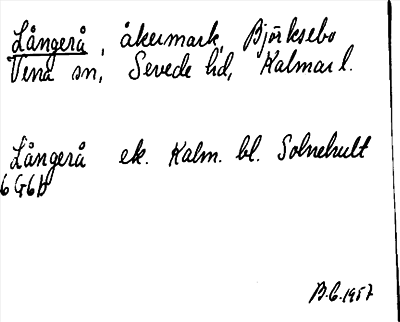 Långerå, åkermark, Björksebo
Vena sn, Sevede hd, Kalmar l.
Långerå ek. Kalm. bl. Solnehult
6G6b
B.C. 1957